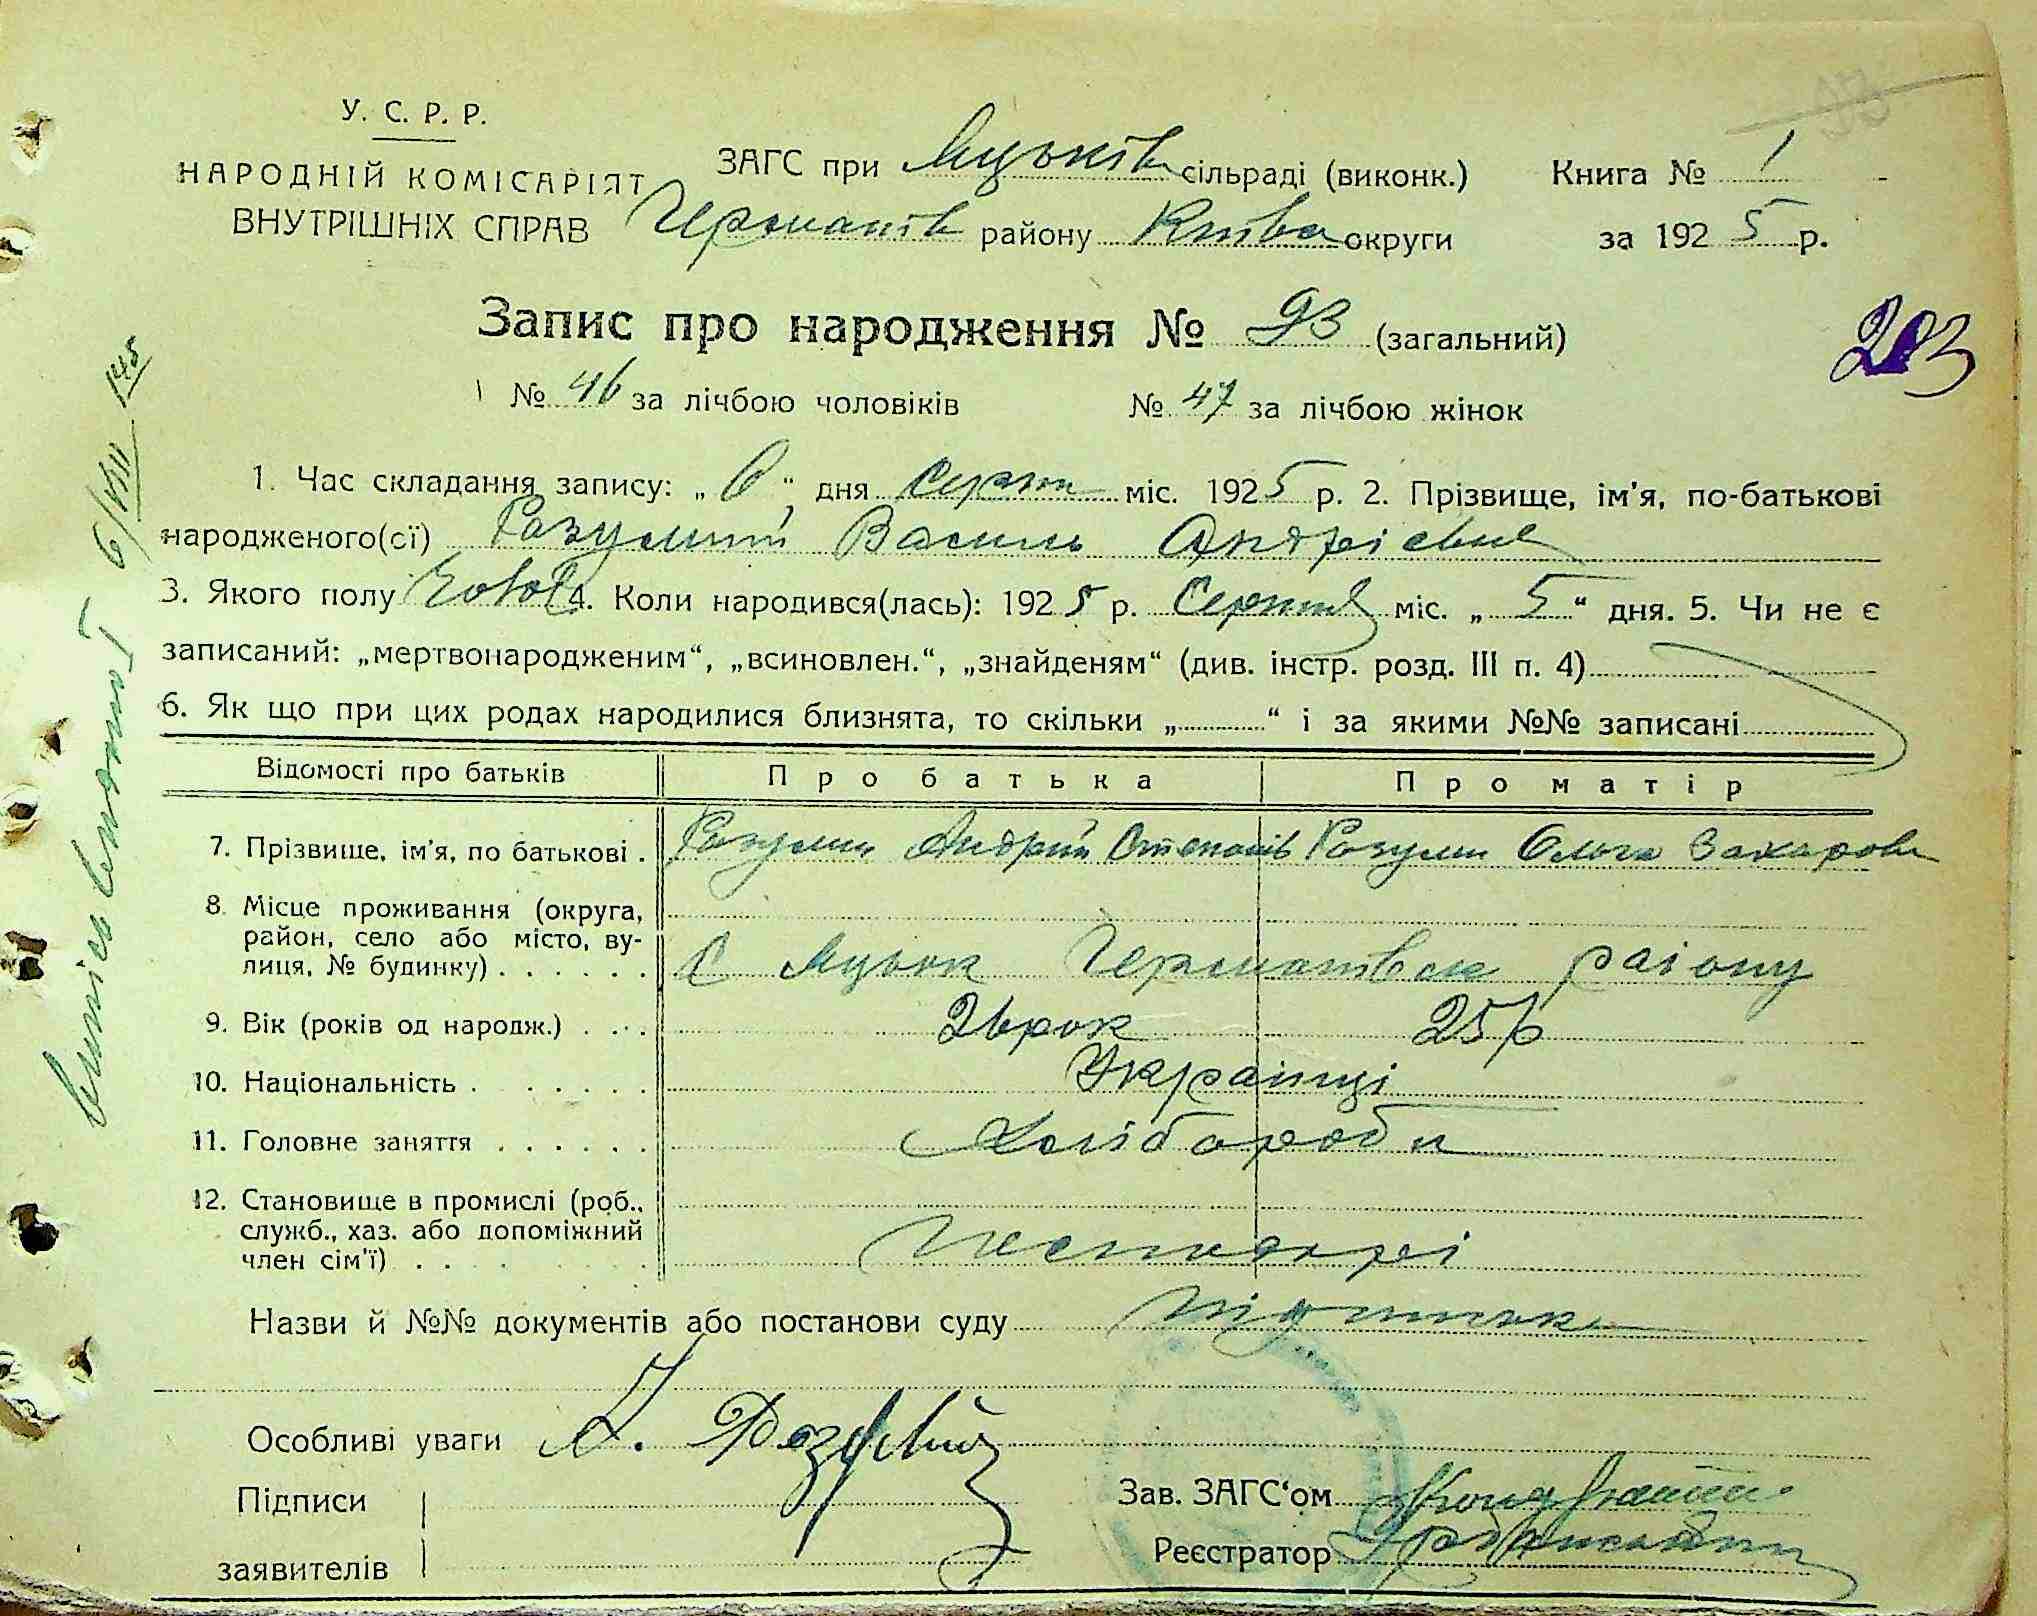 У. С. Р. Р.
НАРОДНІЙ КОМІСАРІЯТ
ВНУТРІШНІХ СПРАВ
ЗАГС при Яцьків сільраді (виконк.) Книга № 1
Германів району Київа округи за 1925 р.
Запис про народження № 93 (загальний)
203
№ 46 за лічбою чоловіків № 47 за лічбою жінок
1. Час складання запису: „6“ дня Серпн міс. 1925 р. 2. Прізвище, ім'я, по-батькові
народженого(сї) Розумний Василь Андрієвич
3. Якого полу Чолов 4. Коли народився(лась): 1925 р. Серпня міс. „5“ дня. 5. Чи не є
записаний: „мертвонародженим“, „всиновлен.“, „знайденям“ (див. інстр. розд. III п. 4)
6. Як що при цих родах народилися близнята, то скільки „ “ і за якими №№ записані
Відомості про батьків Про батька Про матір
7. Прізвище, ім'я, по батькові . Розумн Андрій Степанів Розумн Ольга Захарова
8. Місце проживання (округа,
район, село або місто, ву-
лиця, № будинку) . . . . . . С Яцьок Германівськ раіону
9. Вік (років од народж.) . . . . 26 рок 25 р
10. Національність . . . . . . . Українці
11. Головне заняття . . . . . . Хлібороби
12. Становище в промислі (роб.,
служб., хаз. або допоміжний
член сім'ї) . . . Господарі
Назви й №№ документів або постанови суду
Особливі уваги А. Розумний
Підписи
заявителів
Зав. ЗАГС'ом
Реєстратор
6/VIII 145